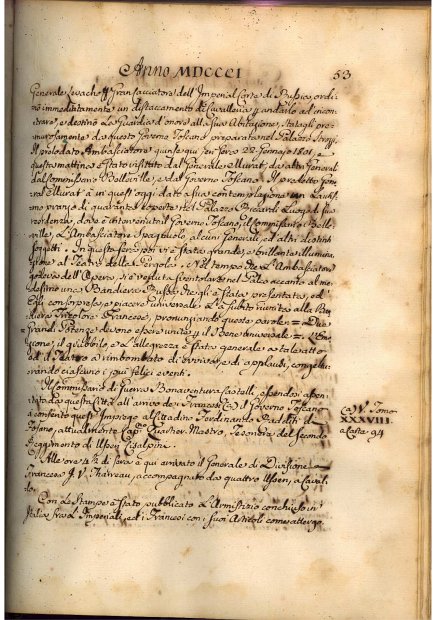 Anno MDCCCI
53
Generale Levachoff Gran Cacciatore dell'Imperial Corte di Russia, ordi-
nò immediatamente un distaccamento di Cavalleria p andarlo ad incon-
trare, e destinò la Guardia d'onore alla sua Abitazione, statagli pre-
murosamente da questo Governo Toscano preparata nel Palazzo Strozzi.
Il prelodato Ambasciatore giunse qui ieri sera 22. Gennajo 1801. e
questa mattina è stato visitato dal Generale Murat, da altri Generali
dal Commissario Belleville, e dal Governo Toscano. Il predetto Gene-
rale Murat à in quest'oggi dato a sua contemplazione un lautissi-
mo pranzo di quaranta coperte nel Palazzo Riccardi Luogo di sua
residenza, dove è intervenuto il Governo Toscano, il Commissario Belle-
ville, l'Ambasciatore Spagnuolo, alcuni Generali, ed altri distinti
soggetti. In questa sera poi vi è stata grande, e brillante illumina-
zione al Teatro della Pergola, e nel tempo che l'Ambasciatore
godeva dell'Opera, si è veduta sventolare nel Palco accanto al me-
desimo una Bandiera Russa che gli è stata presentata, ed
Egli con sorpresa, e piacere universale l'à subito riunita alla Ban-
diera Tricolore Francese, pronunziando queste parole = Due
Grandi Potenze devono essere unite p il Bene universale =. L'A-
zione, il giubbilo, e l'allegrezza è stata generale a tale atto
ed il Teatro à rimbombato di evviva, e di applausi, congetu-
rando ciascuno i più felici eventi.
Il Commissario di Guerra Bonaventura Castelli, essendosi assen-
tato da questa Città all'arrivo de' Francesi
à conferito questo Impiego al Cittadino Ferdinando
Toscano, attualmente Cap. Quartier-Mastro, Tesoriere del secondo
Reggimento di Usseri Cisalpini.
Alle ore 4½ di sera è qui arrivato il Generale di Divisione
Francese J. V. Tharreau, accompagnato da quattro Usseri, a Caval-
lo.
Con le Stampe è stato pubblicato l'Armistizio conchiuso in
Italia fra gl'Imperiali, ed i Francesi con i suoi Articoli come all'ergo.
Tomo
XXXVIII.
a Carta 94